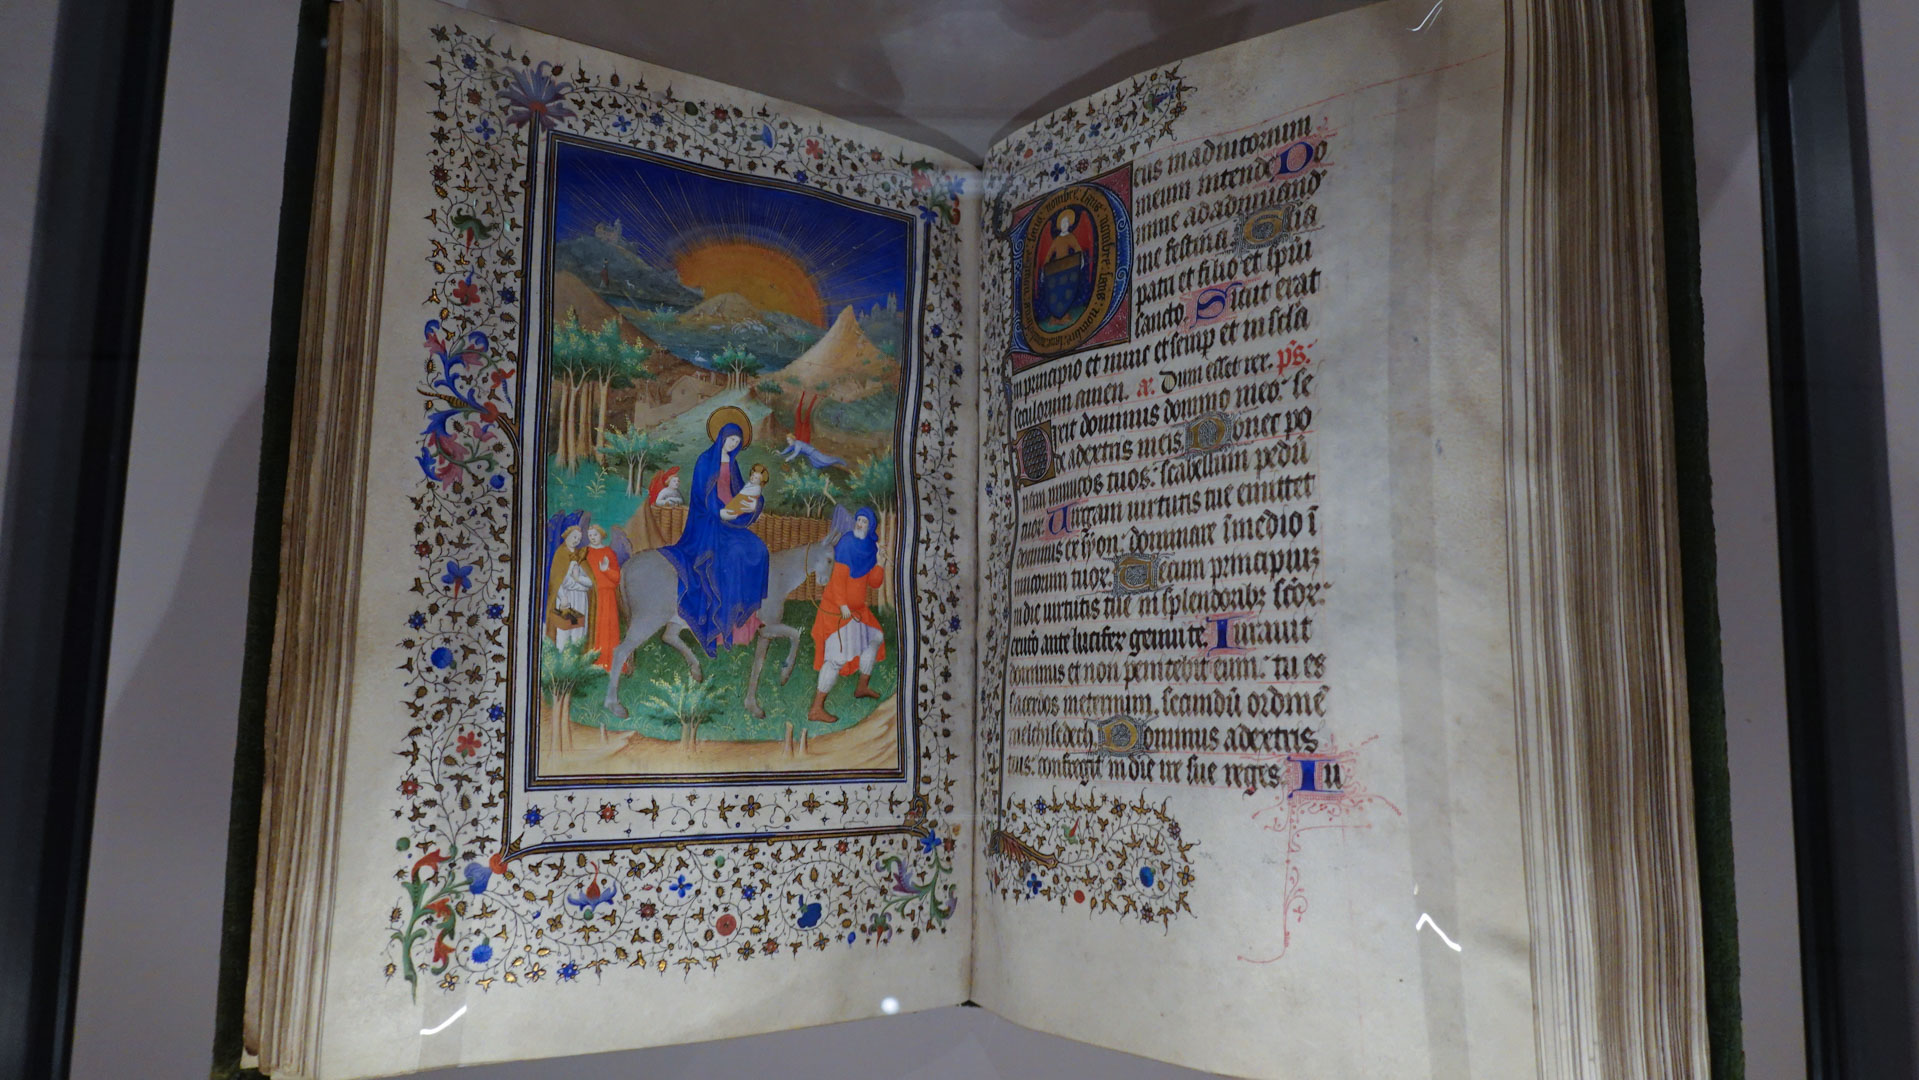 Deus in adiutorium
meum intende Do
mine ad adiuuand'
me festina Glia
patri et filio et spũi
sancto. Sicut erat
in principio et nunc et semp et in scła
seculorum amen. a. Dum esset rex. ps.
Dixit dominus domino meo: se
de a dextris meis Donec po
nam inimicos tuos: scabellum pedũ
tuor. Uirgam uirtutis tue emittet
dominus ex syon: dominare ĩ medio ĩ
nimicorum tuor. Tecum principiuz
in die uirtutis tue in splendoribz scõr:
ante lucifer genui te. Iurauit
dominus et non penitebit eum: tu es
sacerdos in eternum, secundũ ordinẽ
melchisedech Dominus a dextris
tuis: confregit in die ire sue reges. Iu